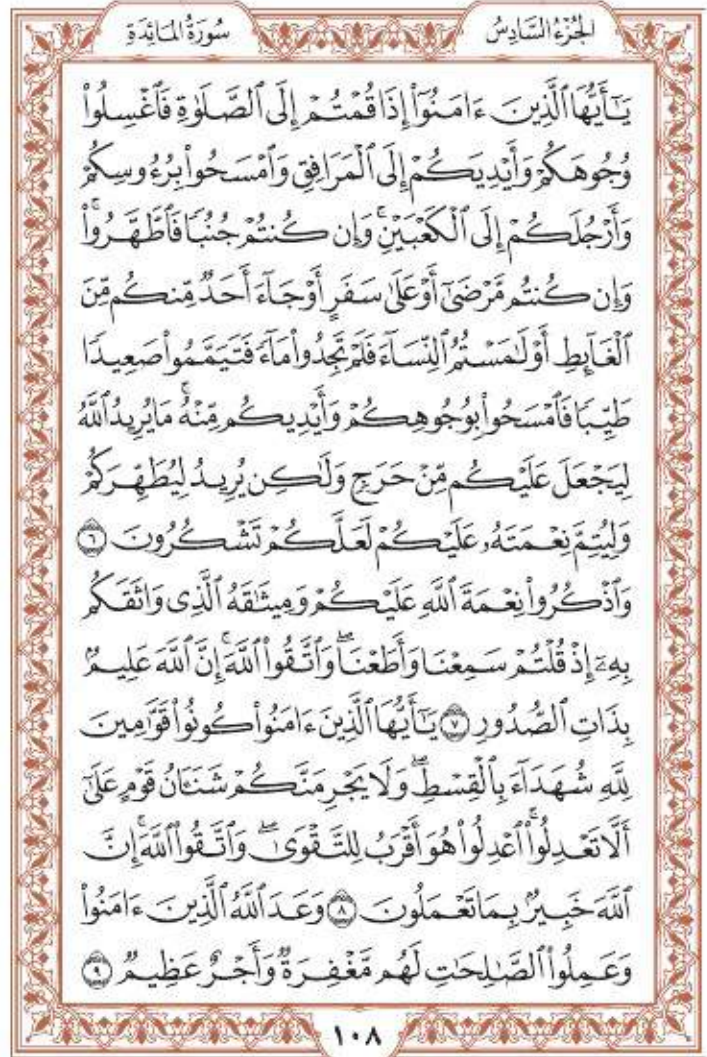 الجُزْءُ السَّادِسُ سُورَةُ المَائِدَةِ
يَٰٓأَيُّهَا ٱلَّذِينَ ءَامَنُوٓا۟ إِذَا قُمْتُمْ إِلَى ٱلصَّلَوٰةِ فَٱغْسِلُوا۟
وُجُوهَكُمْ وَأَيْدِيَكُمْ إِلَى ٱلْمَرَافِقِ وَٱمْسَحُوا۟ بِرُءُوسِكُمْ
وَأَرْجُلَكُمْ إِلَى ٱلْكَعْبَيْنِ ۚ وَإِن كُنتُمْ جُنُبًا فَٱطَّهَّرُوا۟ ۚ
وَإِن كُنتُم مَّرْضَىٰٓ أَوْ عَلَىٰ سَفَرٍ أَوْ جَآءَ أَحَدٌ مِّنكُم مِّنَ
ٱلْغَآئِطِ أَوْ لَٰمَسْتُمُ ٱلنِّسَآءَ فَلَمْ تَجِدُوا۟ مَآءً فَتَيَمَّمُوا۟ صَعِيدًا
طَيِّبًا فَٱمْسَحُوا۟ بِوُجُوهِكُمْ وَأَيْدِيكُم مِّنْهُ ۚ مَا يُرِيدُ ٱللَّهُ
لِيَجْعَلَ عَلَيْكُم مِّنْ حَرَجٍ وَلَٰكِن يُرِيدُ لِيُطَهِّرَكُمْ
وَلِيُتِمَّ نِعْمَتَهُۥ عَلَيْكُمْ لَعَلَّكُمْ تَشْكُرُونَ ٦
وَٱذْكُرُوا۟ نِعْمَةَ ٱللَّهِ عَلَيْكُمْ وَمِيثَٰقَهُ ٱلَّذِى وَاثَقَكُم
بِهِۦٓ إِذْ قُلْتُمْ سَمِعْنَا وَأَطَعْنَا ۖ وَٱتَّقُوا۟ ٱللَّهَ ۚ إِنَّ ٱللَّهَ عَلِيمٌۢ
بِذَاتِ ٱلصُّدُورِ ٧ يَٰٓأَيُّهَا ٱلَّذِينَ ءَامَنُوا۟ كُونُوا۟ قَوَّٰمِينَ
لِلَّهِ شُهَدَآءَ بِٱلْقِسْطِ ۖ وَلَا يَجْرِمَنَّكُمْ شَنَـَٔانُ قَوْمٍ عَلَىٰٓ
أَلَّا تَعْدِلُوا۟ ۚ ٱعْدِلُوا۟ هُوَ أَقْرَبُ لِلتَّقْوَىٰ ۖ وَٱتَّقُوا۟ ٱللَّهَ ۚ إِنَّ
ٱللَّهَ خَبِيرٌۢ بِمَا تَعْمَلُونَ ٨ وَعَدَ ٱللَّهُ ٱلَّذِينَ ءَامَنُوا۟
وَعَمِلُوا۟ ٱلصَّٰلِحَٰتِ ۙ لَهُم مَّغْفِرَةٌ وَأَجْرٌ عَظِيمٌ ٩
١٠٨